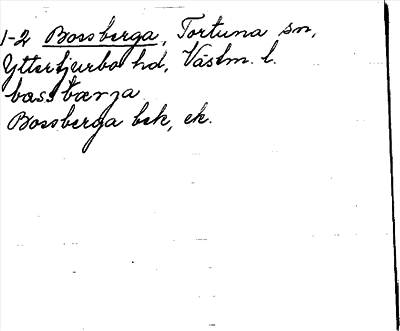 1-2 Bossberga, Tortuna sn,
Ytterbjurbo hd, Västm. l.
bæssbærja
Bossberga bek, ek.